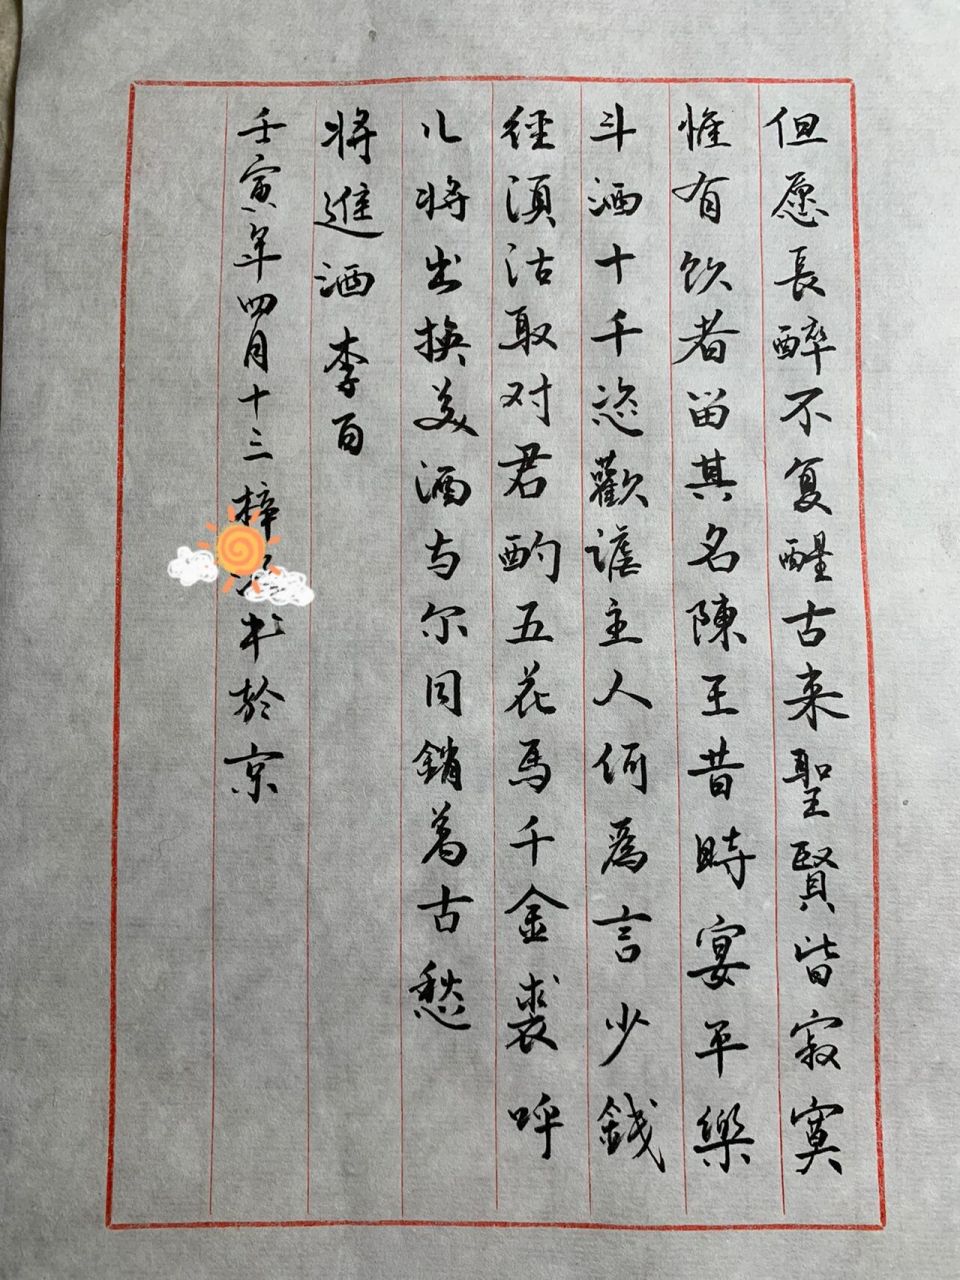 但愿長醉不复醒古来聖賢皆寂寞
惟有饮者留其名陳王昔時宴平樂
斗酒十千恣歡謔主人何爲言少錢
径須沽取对君酌五花馬千金裘呼
儿将出换美酒与尔同銷萬古愁
将進酒李白
壬寅年四月十三梓书於京